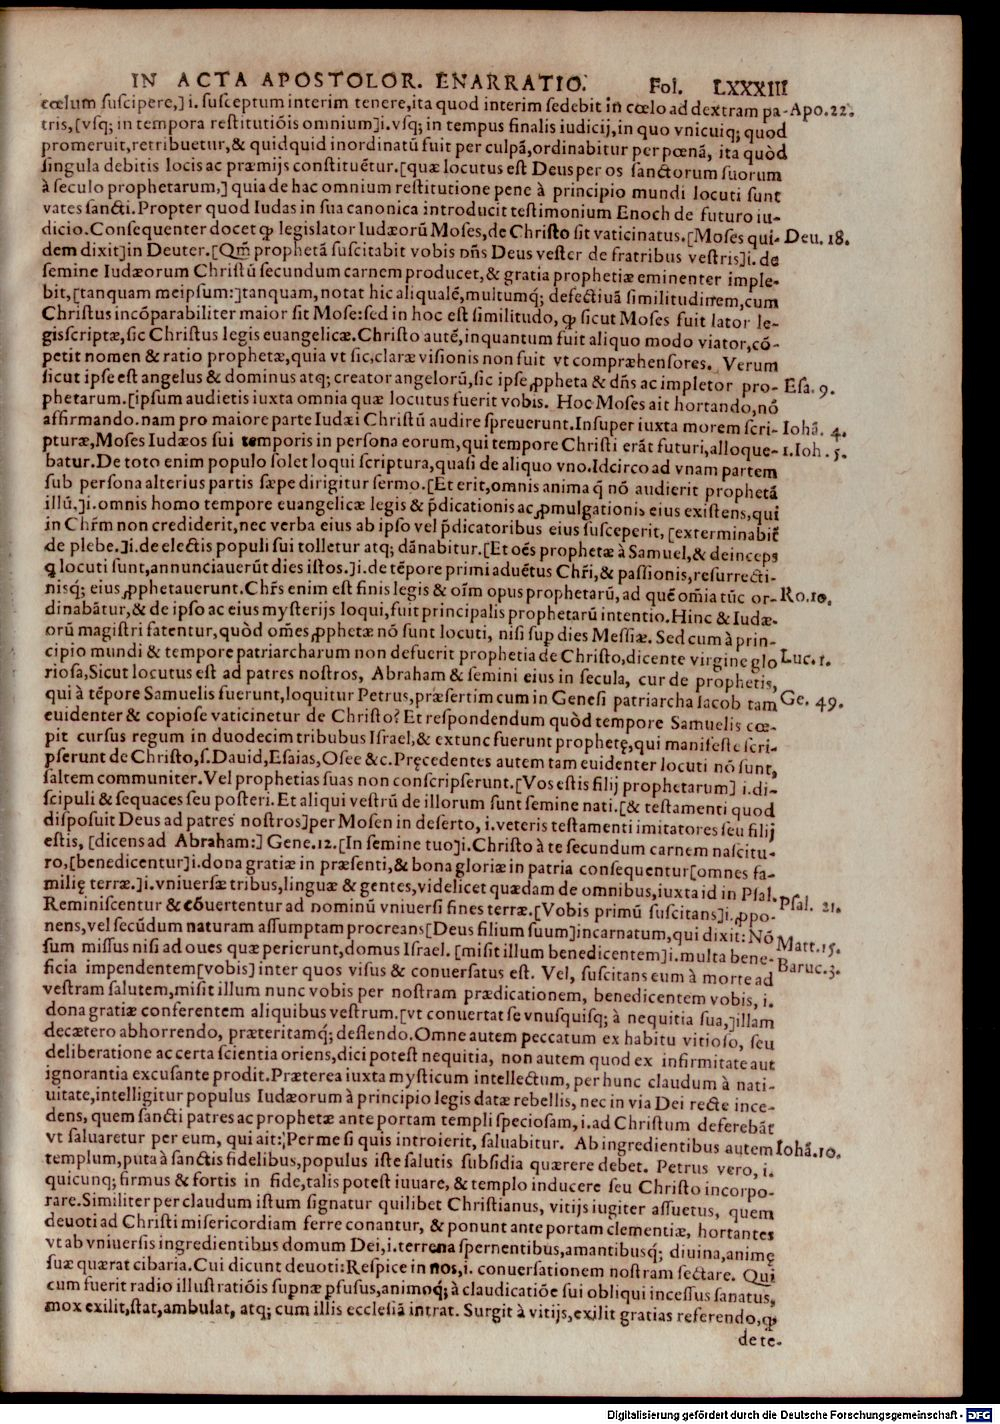 IN ACTA APOSTOLOR. ENARRATIO. Fol. LXXXIII
cœlum suscipere,] i. susceptum interim tenere, ita quod interim sedebit in cœlo ad dextram pa- Apo. 22.
tris, [vsq; in tempora restitutiõis omnium] i. vsq; in tempus finalis iudicij, in quo vnicuiq; quod
promeruit, retribuetur, & quidquid inordinatũ fuit per culpã, ordinabitur per pœnã, ita quòd
singula debitis locis ac præmijs constituẽtur. [quæ locutus est Deus per os sanctorum suorum
à seculo prophetarum,] quia de hac omnium restitutione pene à principio mundi locuti sunt
vates sancti. Propter quod Iudas in sua canonica introducit testimonium Enoch de futuro iu-
dicio. Consequenter docet ꝙ legislator Iudæorũ Moses, de Christo sit vaticinatus. [Moses qui- Deu. 18.
dem dixit] in Deuter. [Qm̃ prophetã suscitabit vobis dñs Deus vester de fratribus vestris] i. de
semine Iudæorum Christũ secundum carnem producet, & gratia prophetiæ eminenter imple-
bit, [tanquam meipsum:] tanquam, notat hic aliqualẽ, multumq́; defectiuã similitudinem, cum
Christus incõparabiliter maior sit Mose: sed in hoc est similitudo, ꝙ sicut Moses fuit lator le-
gis scriptæ, sic Christus legis euangelicæ. Christo autẽ, inquantum fuit aliquo modo viator, cõ-
petit nomen & ratio prophetæ, quia vt sic, claræ visionis non fuit vt compræhensores. Verum
sicut ipse est angelus & dominus atq; creator angelorũ, sic ipse ꝓpheta & dñs ac impletor pro- Esa. 9.
phetarum. [ipsum audietis iuxta omnia quæ locutus fuerit vobis. Hoc Moses ait hortando, nõ
affirmando. nam pro maiore parte Iudæi Christũ audire spreuerunt. Insuper iuxta morem scri- Iohã. 4.
pturæ, Moses Iudæos sui temporis in persona eorum, qui tempore Christi erãt futuri, alloque- 1. Ioh. 5.
batur. De toto enim populo solet loqui scriptura, quasi de aliquo vno. Idcirco ad vnam partem
sub persona alterius partis sæpe dirigitur sermo. [Et erit, omnis anima q̃ nõ audierit prophetã
illũ,] i. omnis homo tempore euangelicæ legis & p̃dicationis ac ꝓmulgationis eius existens, qui
in Chr̃m non crediderit, nec verba eius ab ipso vel p̃dicatoribus eius susceperit, [exterminabit̃
de plebe.] i. de electis populi sui tolletur atq; dãnabitur. [Et oẽs prophetæ à Samuel, & deinceps
q locuti sunt, annunciauerũt dies istos.] i. de tẽpore primi aduẽtus Chr̃i, & passionis, resurrecti-
nisq́; eius ꝓphetauerunt. Chr̃s enim est finis legis & oĩm opus prophetarũ, ad quẽ om̃ia tũc or- Ro. 10.
dinabãtur, & de ipso ac eius mysterijs loqui, fuit principalis prophetarũ intentio. Hinc & Iudæ-
orũ magistri fatentur, quòd om̃es ꝓphetæ nõ sunt locuti, nisi sup dies Messiæ. Sed cum à prin-
cipio mundi & tempore patriarcharum non defuerit prophetia de Christo, dicente virgine glo Luc. 1.
riosa, Sicut locutus est ad patres nostros, Abraham & semini eius in secula, cur de prophetis,
qui à tẽpore Samuelis fuerunt, loquitur Petrus, præsertim cum in Genesi patriarcha Iacob tam Ge. 49.
euidenter & copiose vaticinetur de Christo? Et respondendum quòd tempore Samuelis cœ-
pit cursus regum in duodecim tribubus Israel, & extunc fuerunt prophetę, qui manifeste scri-
pserunt de Christo, s. Dauid, Esaias, Osee &c. Pręcedentes autem tam euidenter locuti nõ sunt,
saltem communiter. Vel prophetias suas non conscripserunt. [Vos estis filij prophetarum] i. di-
scipuli & sequaces seu posteri. Et aliqui vestrũ de illorum sunt semine nati. [& testamenti quod
disposuit Deus ad patres nostros] per Mosen in deserto, i. veteris testamenti imitatores seu filij
estis, [dicens ad Abraham:] Gene. 12. [In semine tuo] i. Christo à te secundum carnem nascitu-
ro, [benedicentur] i. dona gratiæ in præsenti, & bona gloriæ in patria consequentur [omnes fa-
milię terræ.] i. vniuersæ tribus, linguæ & gentes, videlicet quædam de omnibus, iuxta id in Psal.
Reminiscentur & cõuertentur ad nominũ vniuersi fines terræ. [Vobis primũ suscitans] i. ꝓpo- Psal. 21.
nens, vel secũdum naturam assumptam procreans [Deus filium suum] incarnatum, qui dixit: Nõ
sum missus nisi ad oues quæ perierunt, domus Israel. [misit illum benedicentem] i. multa bene- Matt. 15.
ficia impendentem [vobis] inter quos visus & conuersatus est. Vel, suscitans eum à morte ad Baruc. 3.
vestram salutem, misit illum nunc vobis per nostram prædicationem, benedicentem vobis, i.
dona gratiæ conferentem aliquibus vestrum. [vt conuertat se vnusquisq; à nequitia sua,] illam
decætero abhorrendo, præteritamq́; deflendo. Omne autem peccatum ex habitu vitioso, seu
deliberatione ac certa scientia oriens, dici potest nequitia, non autem quod ex infirmitate aut
ignorantia excusante prodit. Præterea iuxta mysticum intellectum, per hunc claudum à nati-
uitate, intelligitur populus Iudæorum à principio legis datæ rebellis, nec in via Dei recte ince-
dens, quem sancti patres ac prophetæ ante portam templi speciosam, i. ad Christum deferebãt
vt saluaretur per eum, qui ait: Per me si quis introierit, saluabitur. Ab ingredientibus autem Iohã. 10.
templum, puta à sanctis fidelibus, populus iste salutis subsidia quærere debet. Petrus vero, i.
quicunq; firmus & fortis in fide, talis potest iuuare, & templo inducere seu Christo incorpo-
rare. Similiter per claudum istum signatur quilibet Christianus, vitijs iugiter assuetus, quem
deuoti ad Christi misericordiam ferre conantur, & ponunt ante portam clementiæ, hortantes
vt ab vniuersis ingredientibus domum Dei, i. terrena spernentibus, amantibusq́; diuina, animę
suæ quærat cibaria. Cui dicunt deuoti: Respice in nos, i. conuersationem nostram sectare. Qui
cum fuerit radio illustratiõis supnæ pfusus, animoq́; à claudicatiõe sui obliqui incessus sanatus,
mox exilit, stat, ambulat, atq; cum illis ecclesiã intrat. Surgit à vitijs, exilit gratias referendo, ꝙ
de te-
Digitalisierung gefördert durch die Deutsche Forschungsgemeinschaft - DFG